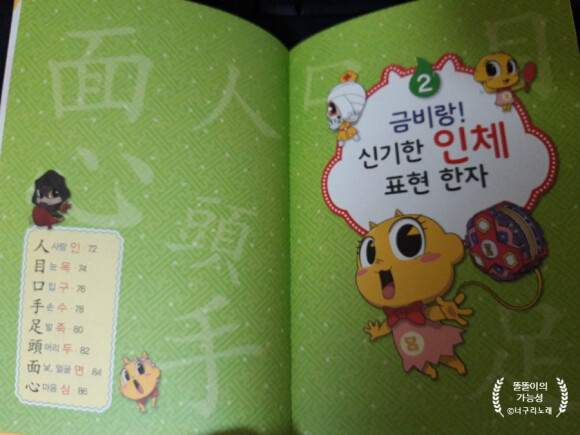 面人
心
頭
手
人 사람 인 · 72
目 눈 목 · 74
口 입 구 · 76
手 손 수 · 78
足 발 족 · 80
頭 머리 두 · 82
面 낯, 얼굴 면 · 84
心 마음 심 · 86
口
目
2
금비랑!
신기한 인체
표현 한자
足
똘똘이의
가능성
©너구리노래